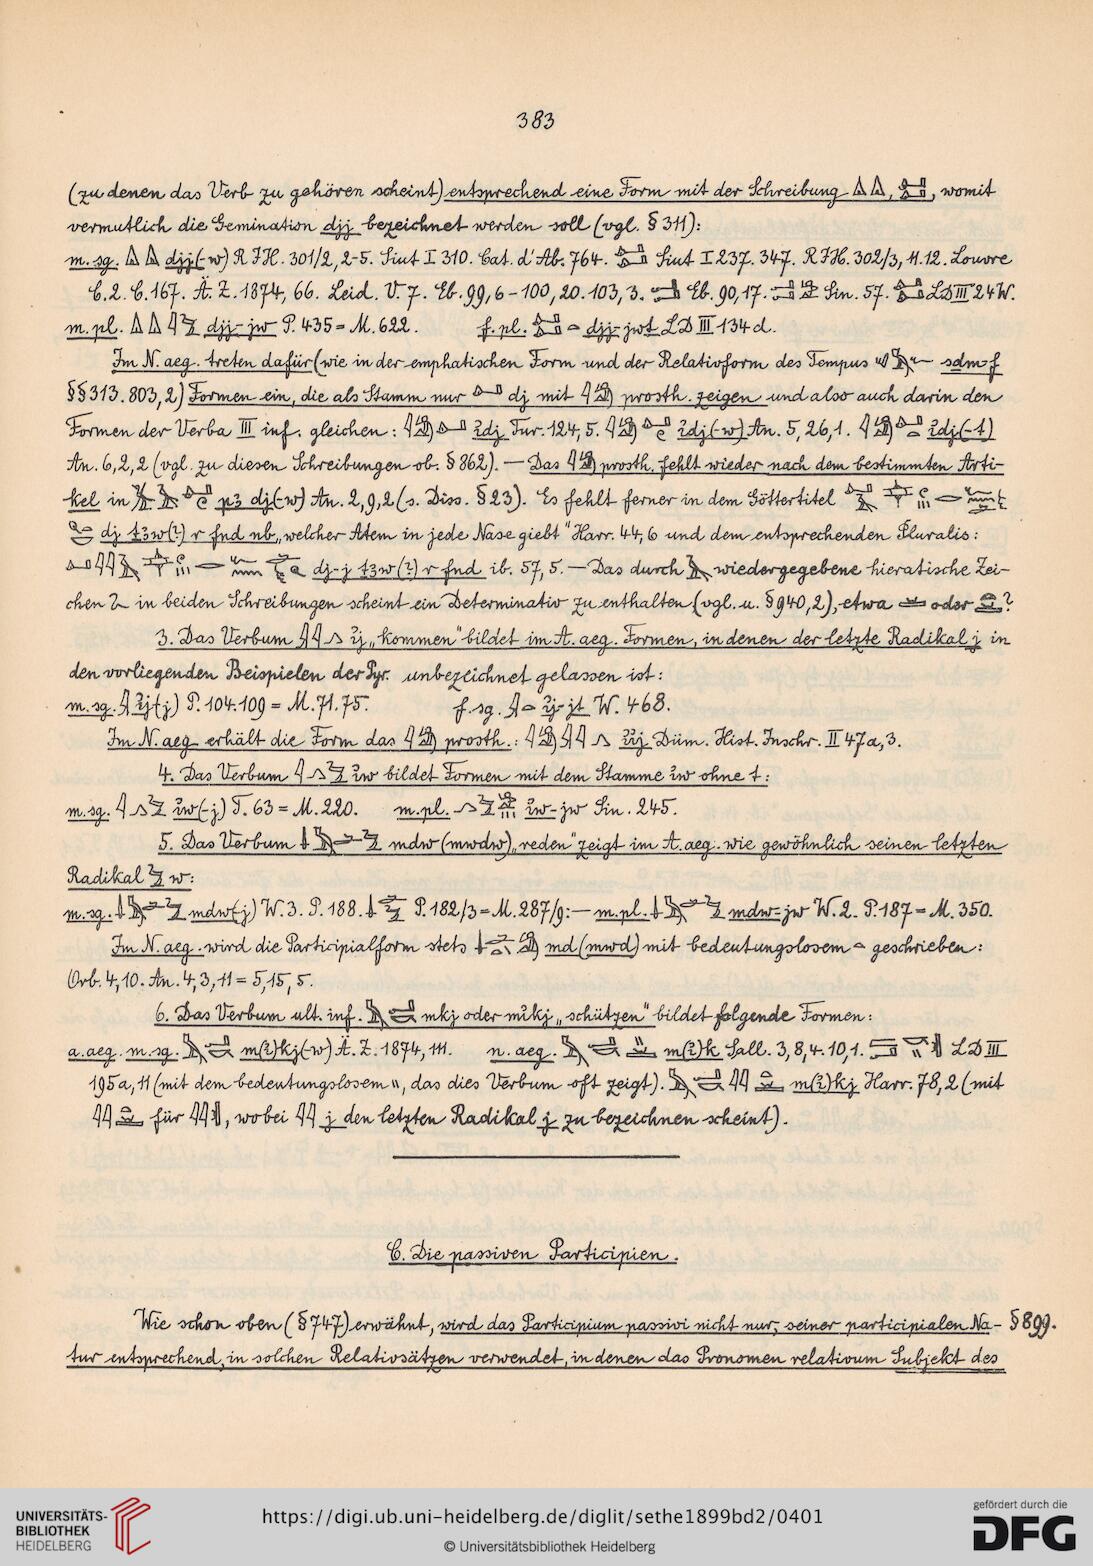 383
(zu denen das Verb zu gehören scheint) entsprechend eine Form mit der Schreibung 𓏙𓏙, womit
vermutlich die Gemination djj bezeichnet werden soll (vgl. § 311):
m. sg. 𓏙𓏙 djj(-w) R. I H. 301/2, 2-5. Siut I 310. Cat. d'Ab. 764. Siut I 237. 347. R. I H. 302/3, 11. 12. Louvre
C. 2. C. 167. Ä. Z. 1874, 66. Leid. V. 7. Eb. 99, 6 - 100, 20. 103, 3. Eb. 90, 17. Sin. 57. LD III 24 W.
m. pl. djj-jw P. 435 = M. 622. f. pl. djj-jwt LD III 134 d.
Im N. aeg. treten dafür (wie in der emphatischen Form und der Relativform des Tempus sdm-f
§§ 313. 803, 2) Formen ein, die als Stamm nur dj mit prosth. zeigen und also auch darin den
Formen der Verba III inf. gleichen: ꞽdj Tur. 124, 5. ꞽdj(-w) An. 5, 26, 1. ꞽdj(-t)
An. 6, 2, 2 (vgl. zu diesen Schreibungen ob. § 862). — Das prosth. fehlt wieder nach dem bestimmten Arti-
kel in pꜣ dj(-w) An. 2, 9, 2 (s. Diss. § 23). Es fehlt ferner in dem Göttertitel
dj tꜣw(?) r fnd nb „welcher Atem in jede Nase giebt" Harr. 44, 6 und dem entsprechenden Pluralis:
dj-j tꜣw(?) r fnd ib. 57, 5. — Das durch wiedergegebene hieratische Zei-
chen in beiden Schreibungen scheint ein Determinativ zu enthalten (vgl. u. § 940, 2), etwa oder ?
3. Das Verbum ꞽj „kommen" bildet im A. aeg. Formen, in denen der letzte Radikal j in
den vorliegenden Beispielen der Pyr. unbezeichnet gelassen ist:
m. sg. ꞽj(-j) P. 104. 109 = M. 71. 75. f. sg. ꞽj-jt W. 468.
Im N. aeg. erhält die Form das prosth.: ꞽꞽj Düm. Hist. Inschr. II 47a, 3.
4. Das Verbum ꞽw bildet Formen mit dem Stamme ꞽw ohne t:
m. sg. ꞽw(-j) T. 63 = M. 220. m. pl. ꞽw-jw Sin. 245.
5. Das Verbum mdw (mwdw) „reden" zeigt im A. aeg. wie gewöhnlich seinen letzten
Radikal w:
m. sg. mdw(-j) W. 3. P. 188. P. 182/3 = M. 287/9: — m. pl. mdw-jw W. 2. P. 187 = M. 350.
Im N. aeg. wird die Participialform stets md (mwd) mit bedeutungslosem geschrieben:
Orb. 4, 10. An. 4, 3, 11 = 5, 15, 5.
6. Das Verbum ult. inf. mkj oder mꞽkj „schützen" bildet folgende Formen:
a. aeg. m. sg. m(ꞽ)kj(-w) Ä. Z. 1874, 111. n. aeg. m(ꞽ)k Sall. 3, 8, 4. 10, 1. LD III
195a, 11 (mit dem bedeutungslosem \\, das dies Verbum oft zeigt). m(ꞽ)kj Harr. 78, 2 (mit
für , wobei j den letzten Radikal j zu bezeichnen scheint).
C. Die passiven Participien.
Wie schon oben (§ 747) erwähnt, wird das Participium passivi nicht nur, seiner participialen Na- § 899.
tur entsprechend, in solchen Relativsätzen verwendet, in denen das Pronomen relativum Subjekt des
UNIVERSITÄTS-
BIBLIOTHEK
HEIDELBERG
https://digi.ub.uni-heidelberg.de/diglit/sethe1899bd2/0401
© Universitätsbibliothek Heidelberg
gefördert durch die
DFG